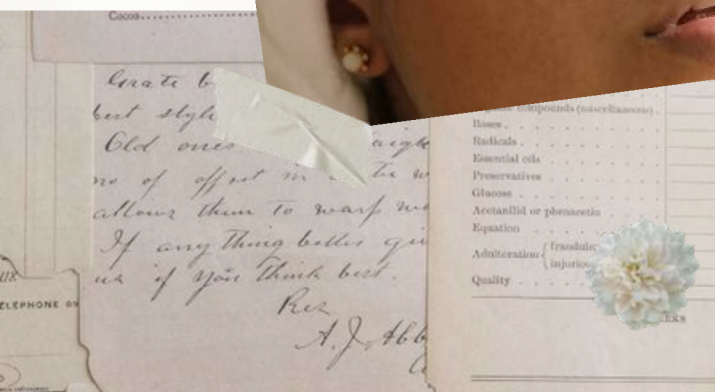 Cocoa
Grate b
best style
Old ones aigh
no of offset in
allows them to warp
If any thing better gi
us if you think best.
Res
A. J. Abb
TELEPHONE 69
compounds (miscellaneous)
Bases
Radicals
Essential oils
Preservatives
Glucose
Acetanilid or phenacetin
Equation
Adulteration { fraudule
injurio
Quality